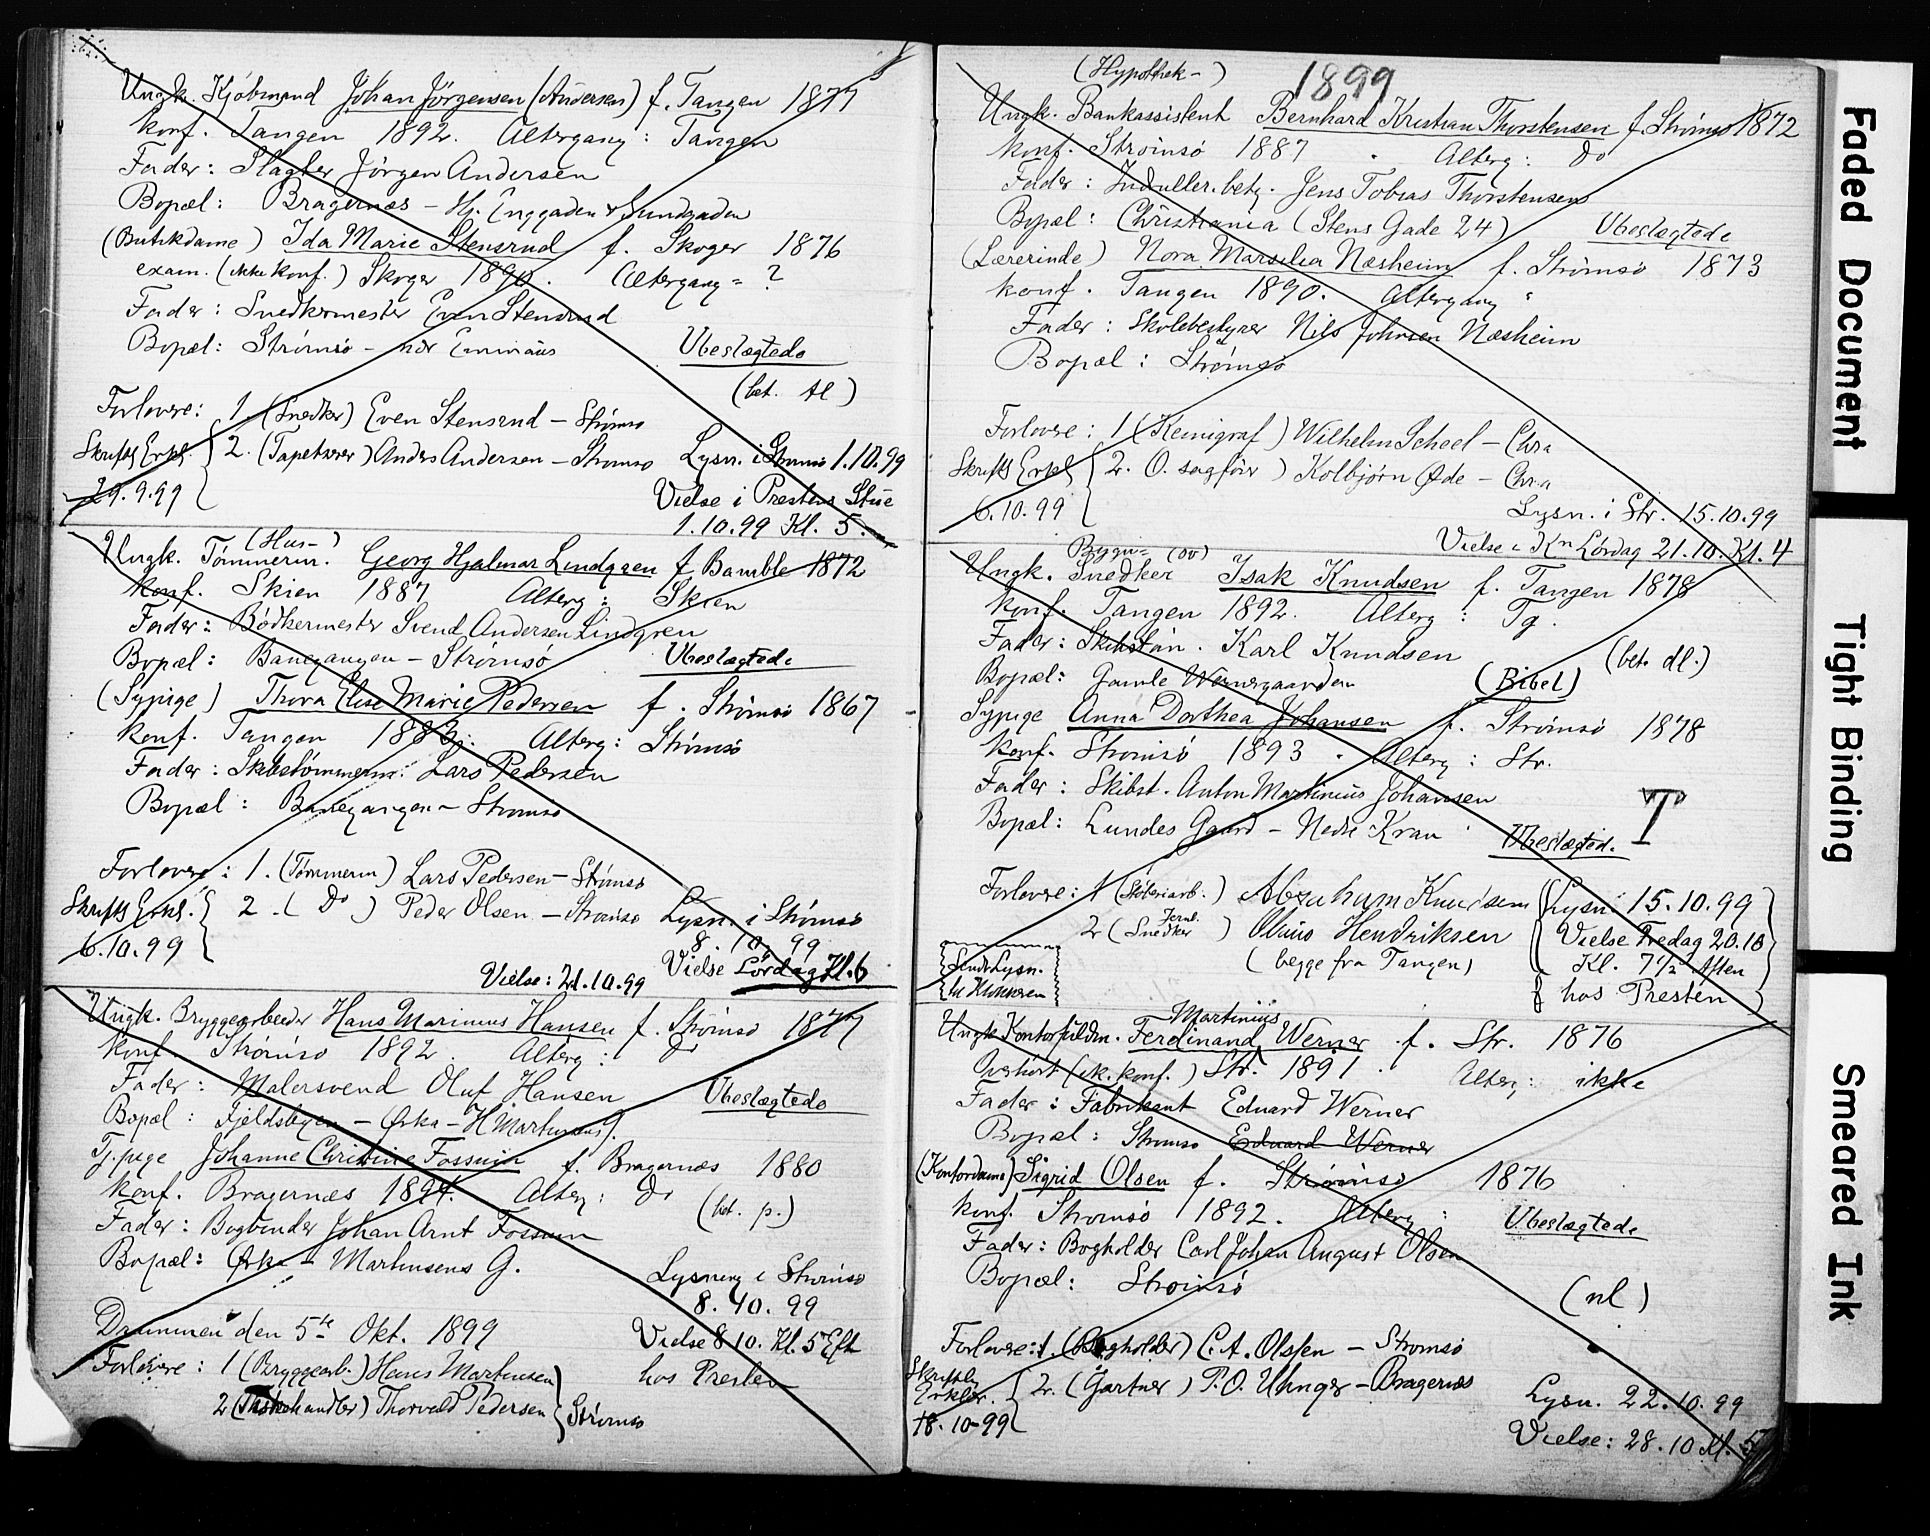 Ungk. Kjöbmand Johan Jörgensen (Andersen) f. Tangen 1877
konf. Tangen 1892. Altergang: Tangen
Fader: Slagter Jörgen Andersen
Bopæl: Bragernæs – Hj. Enggaden & Sundgaden
(Butikdame) Ida Marie Stensrud f. Skoger 1876
exam. (ikke konf.) Skoger 1890. Altergang = ?
Fader: Snedkermester Even Stensrud
Bopæl: Strömsö – nær Emmaus
Ubeslægtede
(bet. tl)
Forlovere: 1. (Snedker) Even Stensrud – Strömsö
Skriftl. Erkl. 2. (Tapetserer) Anders Andersen – Strömsö
29.9.99
Lysn. i Strömsö 1.10.99
Vielse i Prestens Stue
1.10.99 Kl. 5.
(Hus-)
Ungk. Tömmerm. Georg Hjalmar Lindgren f Bamble 1872
konf. Skien 1887 Alterg: Skien
Fader: Bödkermester Svend Andersen Lindgren
Bopæl: Banegangen – Strømsö
Ubeslægtede
(Sypige) Thora Elise Marie Pedersen f. Strömsö 1867
konf. Tangen 1883. Alterg: Strömsö
Fader: Skibstömmerm. Lars Pedersen
Bopæl: Banegangen – Strömsö
Forlovere: 1. (Tömmerm) Lars Pedersen – Strömsö
Skriftl. Erkl. 2. (Do) Peder Olsen – Strömsö
6.10.99
Lysn. i Strömsö
8.10.99
Vielse: 21.10.99 Vielse Lördag Kl. 6
Ungk. Bryggearbeider Hans Marinius Hansen f. Strömsö 1877
konf. Strömsö 1892. Alterg: Do
Fader: Malersvend Oluf Hansen
Ubeslægtede
Bopæl: Fjeldsbyen – Ørka – H Martinsens G.
Tj.pige Johanne Christine Fossum f. Bragernæs 1880
konf. Bragernæs 1894. Alterg: Do
(bet. p.)
Fader: Bogbinder Johan Arnt Fossum
Bopæl: Ørka – Martinsens G.
Lysning i Strömsö
8.10.99
Drammen den 5te Okt. 1899
Vielse 8.10. Kl. 5 Eft
hos Presten
Forlovere: 1 (Bryggearb.) Hans Martinsen
2 (Fiskehandler) Thorvald Pedersen
Strömsö
1899
(Hypothek-)
Ungk. Bankassistent Bernhard Kristian Thorstensen f. Strömsö 1872
konf. Strömsö 1887. Alterg: Do
Fader: Jens Tobias Thorstensen
Bopæl: Christiania (Stens Gade 24)
Ubeslægtede
(Lærerinde) Nora Marselia Næsheim f. Strömsö 1873
konf. Tangen 1890. Altergang "
Fader: Skolebestyrer Nils Johnsen Næsheim
Bopæl: Strömsö
Forlovere: 1 (Kemigraf) Wilhelm Scheel – Chra
Skriftl Erkl 2. O. sagförer) Kolbjørn Øde – Chra
6.10.99
Lysn. i Str. 15.10.99
Vielse i Kn Lördag 21.10. Kl. 4
Bygn= (ov)
Ungk. Snedker Isak Knudsen f. Tangen 1878
konf. Tangen 1892. Alterg: Tg.
Fader: Skibstöm. Karl Knudsen
(bet. dl.)
Bopæl: Gamle Wernersgaarden
(Bibel)
Sypige Anna Dorthea Johansen f. Strömsö 1878
konf. Strömsö 1893. Alterg: Str.
Fader: Skibst. Anton Martinius Johansen
T
Bopæl: Lundes Gaard – Nedre Kran
Ubeslægted.
Forlovere: 1 (Støberiarb.) Abraham Knudsen
2 (Snedker) Olaus Hendriksen
Jernb.
(begge fra Tangen)
Lysn. 15.10.99
Vielse Fredag 20.10
Kl. 7½ Aften
hos Presten
Send Lysn.
til Klokkeren
Martinius
Ungk Kontorfuldm. Ferdinand Werner f. Str. 1876
Overhört (ik. konf.) Str. 1891. Alterg: ikke
Fader: Fabrikant Eduard Werner
Bopæl: Strömsö Eduard Werner
(Kontordame) Sigrid Olsen f. Strömsö 1876
konf. Strömsö 1892. Alterg:
Ubeslægtede
Fader: Bogholder Carl Johan August Olsen
Bopæl: Strömsö
(nl)
Forlovere: 1. (Bogholder) C.A. Olsen – Strömsö
Skriftl. Erklær. 2. (Gartner) P.O. Unger – Bragernæs
18.10-99
Lysn. 22.10.99
Vielse: 28.10 Kl. 5
Faded Document
Tight Binding
Smeared Ink